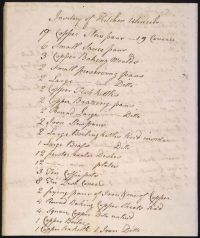 Inventory of Kitchen Utensils
19 Copper Stewpans — 19 Covers
6 Small Sauce pans
3 Copper Baking Moulds
2 Small preserving pans
2 Large — Ditto
2 Copper Fish kettles
2 Copper Brazeing pans
2 Round Large — Ditto
2 Iron Stewpans
2 Large Boiling kettles
1 Large Ditto
12 — plates
3 Tin Coffee pots
Tin Dish Covers
2 frying pans of Iron & one of Copper
4 Round Baking Copper Sheets
4 Square Copper Ditto
1 Copper
1 Copper 1 Iron Ditto